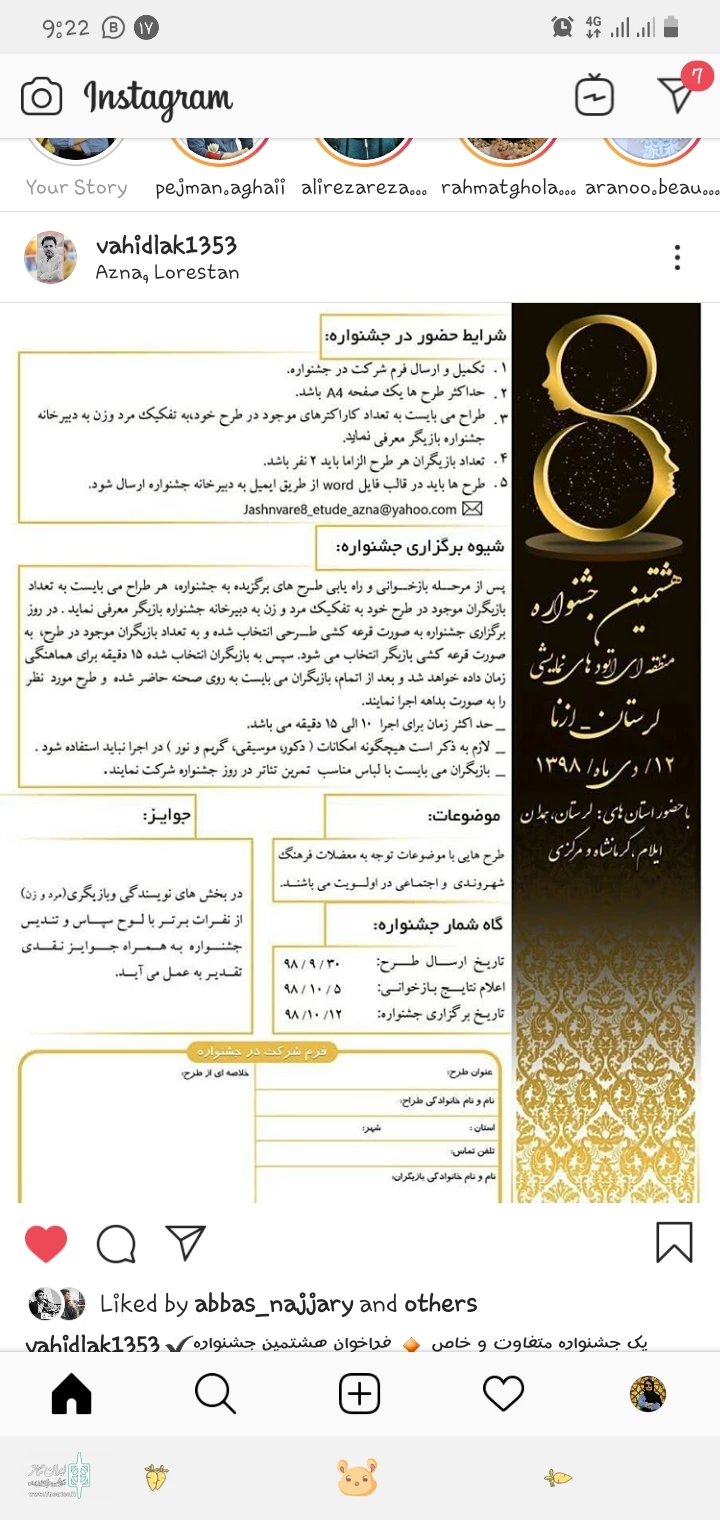 9:22
۱۷
Instagram
7
Your Story pejman.aghaii alirezareza... rahmatghola... aranoo.beau...
vahidlak1353
Azna, Lorestan
شرایط حضور در جشنواره:
۱. تکمیل و ارسال فرم شرکت در جشنواره.
۲. حداکثر طرح ها یک صفحه A4 باشد.
۳. طراح می بایست به تعداد کاراکترهای موجود در طرح خود،به تفکیک مرد وزن به دبیرخانه
جشنواره بازیگر معرفی نماید.
۴. تعداد بازیگران هر طرح الزاما باید ۲ نفر باشد.
۵. طرح ها باید در قالب فایل word از طریق ایمیل به دبیرخانه جشنواره ارسال شود.
Jashnvare8_etude_azna@yahoo.com
شیوه برگزاری جشنواره:
پس از مرحله بازخوانی و راه یابی طرح های برگزیده به جشنواره، هر طراح می بایست به تعداد
بازیگران موجود در طرح خود به تفکیک مرد و زن به دبیرخانه جشنواره بازیگر معرفی نماید . در روز
برگزاری جشنواره به صورت قرعه کشی طرحی انتخاب شده و به تعداد بازیگران موجود در طرح، به
صورت قرعه کشی بازیگر انتخاب می شود. سپس به بازیگران انتخاب شده ۱۵ دقیقه برای هماهنگی
زمان داده خواهد شد و بعد از اتمام، بازیگران می بایست به روی صحنه حاضر شده و طرح مورد نظر
را به صورت بداهه اجرا نمایند.
_ حد اکثر زمان برای اجرا ۱۰ الی ۱۵ دقیقه می باشد.
_ لازم به ذکر است هیچگونه امکانات ( دکور، موسیقی، گریم و نور ) در اجرا نباید استفاده شود .
_ بازیگران می بایست با لباس مناسب تمرین تئاتر در روز جشنواره شرکت نمایند.
موضوعات:
طرح هایی با موضوعات توجه به معضلات فرهنگ
شهروندی و اجتماعی در اولویت می باشند.
جوایز:
در بخش های نویسندگی وبازیگری(مرد و زن)
از نفرات برتر با لوح سپاس و تندیس
جشنواره به همراه جوایز نقدی
تقدیر به عمل می آید.
گاه شمار جشنواره:
تاریخ ارسال طرح: ۹۸/۹/۳۰
اعلام نتایج بازخوانی: ۹۸/۱۰/۵
تاریخ برگزاری جشنواره: ۹۸/۱۰/۱۲
فرم شرکت در جشنواره
عنوان طرح:
نام و نام خانوادگی طراح:
استان : شهر:
تلفن تماس:
نام و نام خانوادگی بازیگران:
خلاصه ای از طرح:
8
هشتمین جشنواره
منطقه ای اتود های نمایشی
لرستان _ ازنا
۱۲/ دی ماه/ ۱۳۹۸
با حضور استان های: لرستان، همدان
ایلام، کرمانشاه و مرکزی
Liked by abbas_najjary and others
vahidlak1353 یک جشنواره متفاوت و خاص فراخوان هشتمین جشنواره
ایران تئاتر